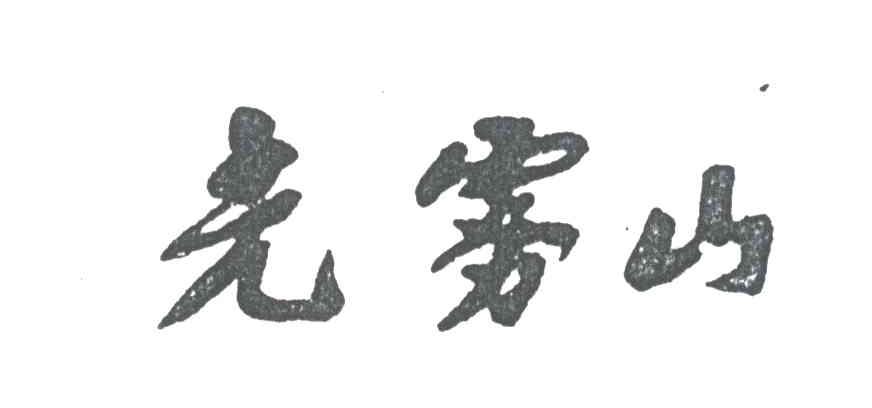 光雾山